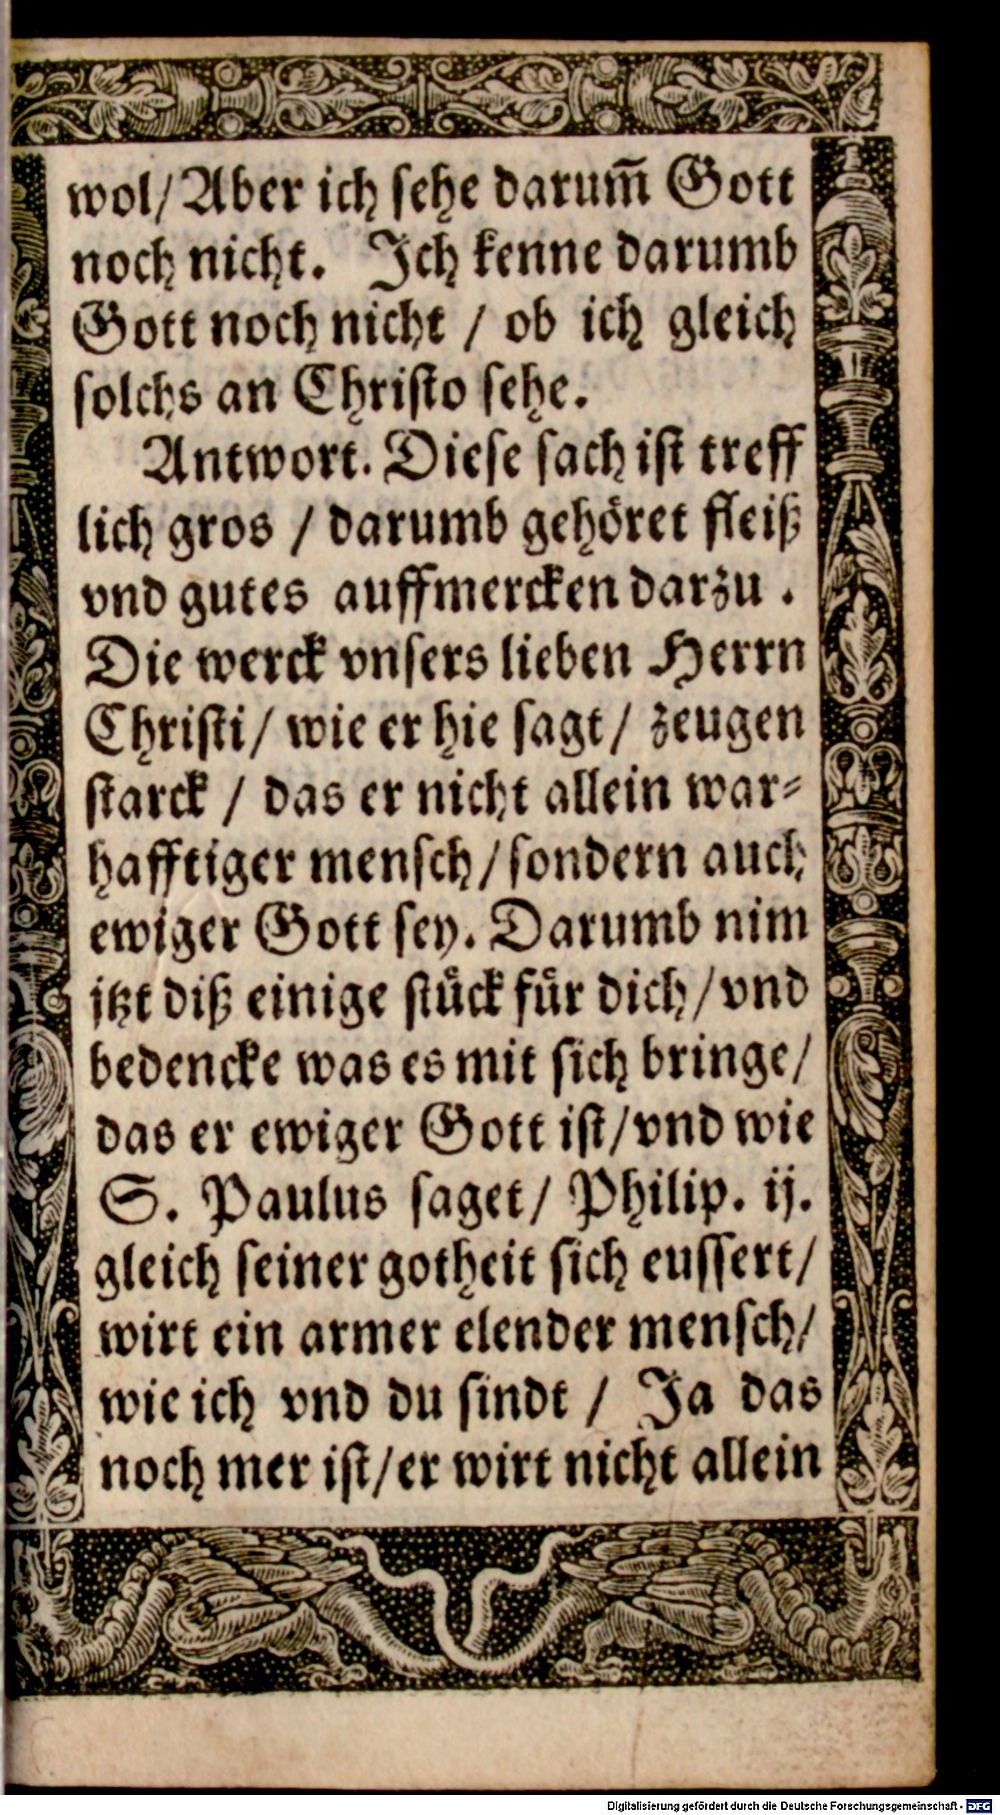 wol/ Aber ich sehe darum̄ Gott
noch nicht. Ich kenne darumb
Gott noch nicht / ob ich gleich
solchs an Christo sehe.
Antwort. Diese sach ist treff
lich gros / darumb gehöret fleiß
vnd gutes auffmercken darzu .
Die werck vnsers lieben Herrn
Christi/ wie er hie sagt/ zeugen
starck / das er nicht allein war⸗
hafftiger mensch/ sondern auch
ewiger Gott sey. Darumb nim
jtzt diß einige stück für dich/ vnd
bedencke was es mit sich bringe/
das er ewiger Gott ist/ vnd wie
S. Paulus saget/ Philip. ij.
gleich seiner gotheit sich eussert/
wirt ein armer elender mensch/
wie ich vnd du sindt / Ja das
noch mer ist/ er wirt nicht allein
Digitalisierung gefördert durch die Deutsche Forschungsgemeinschaft - DFG